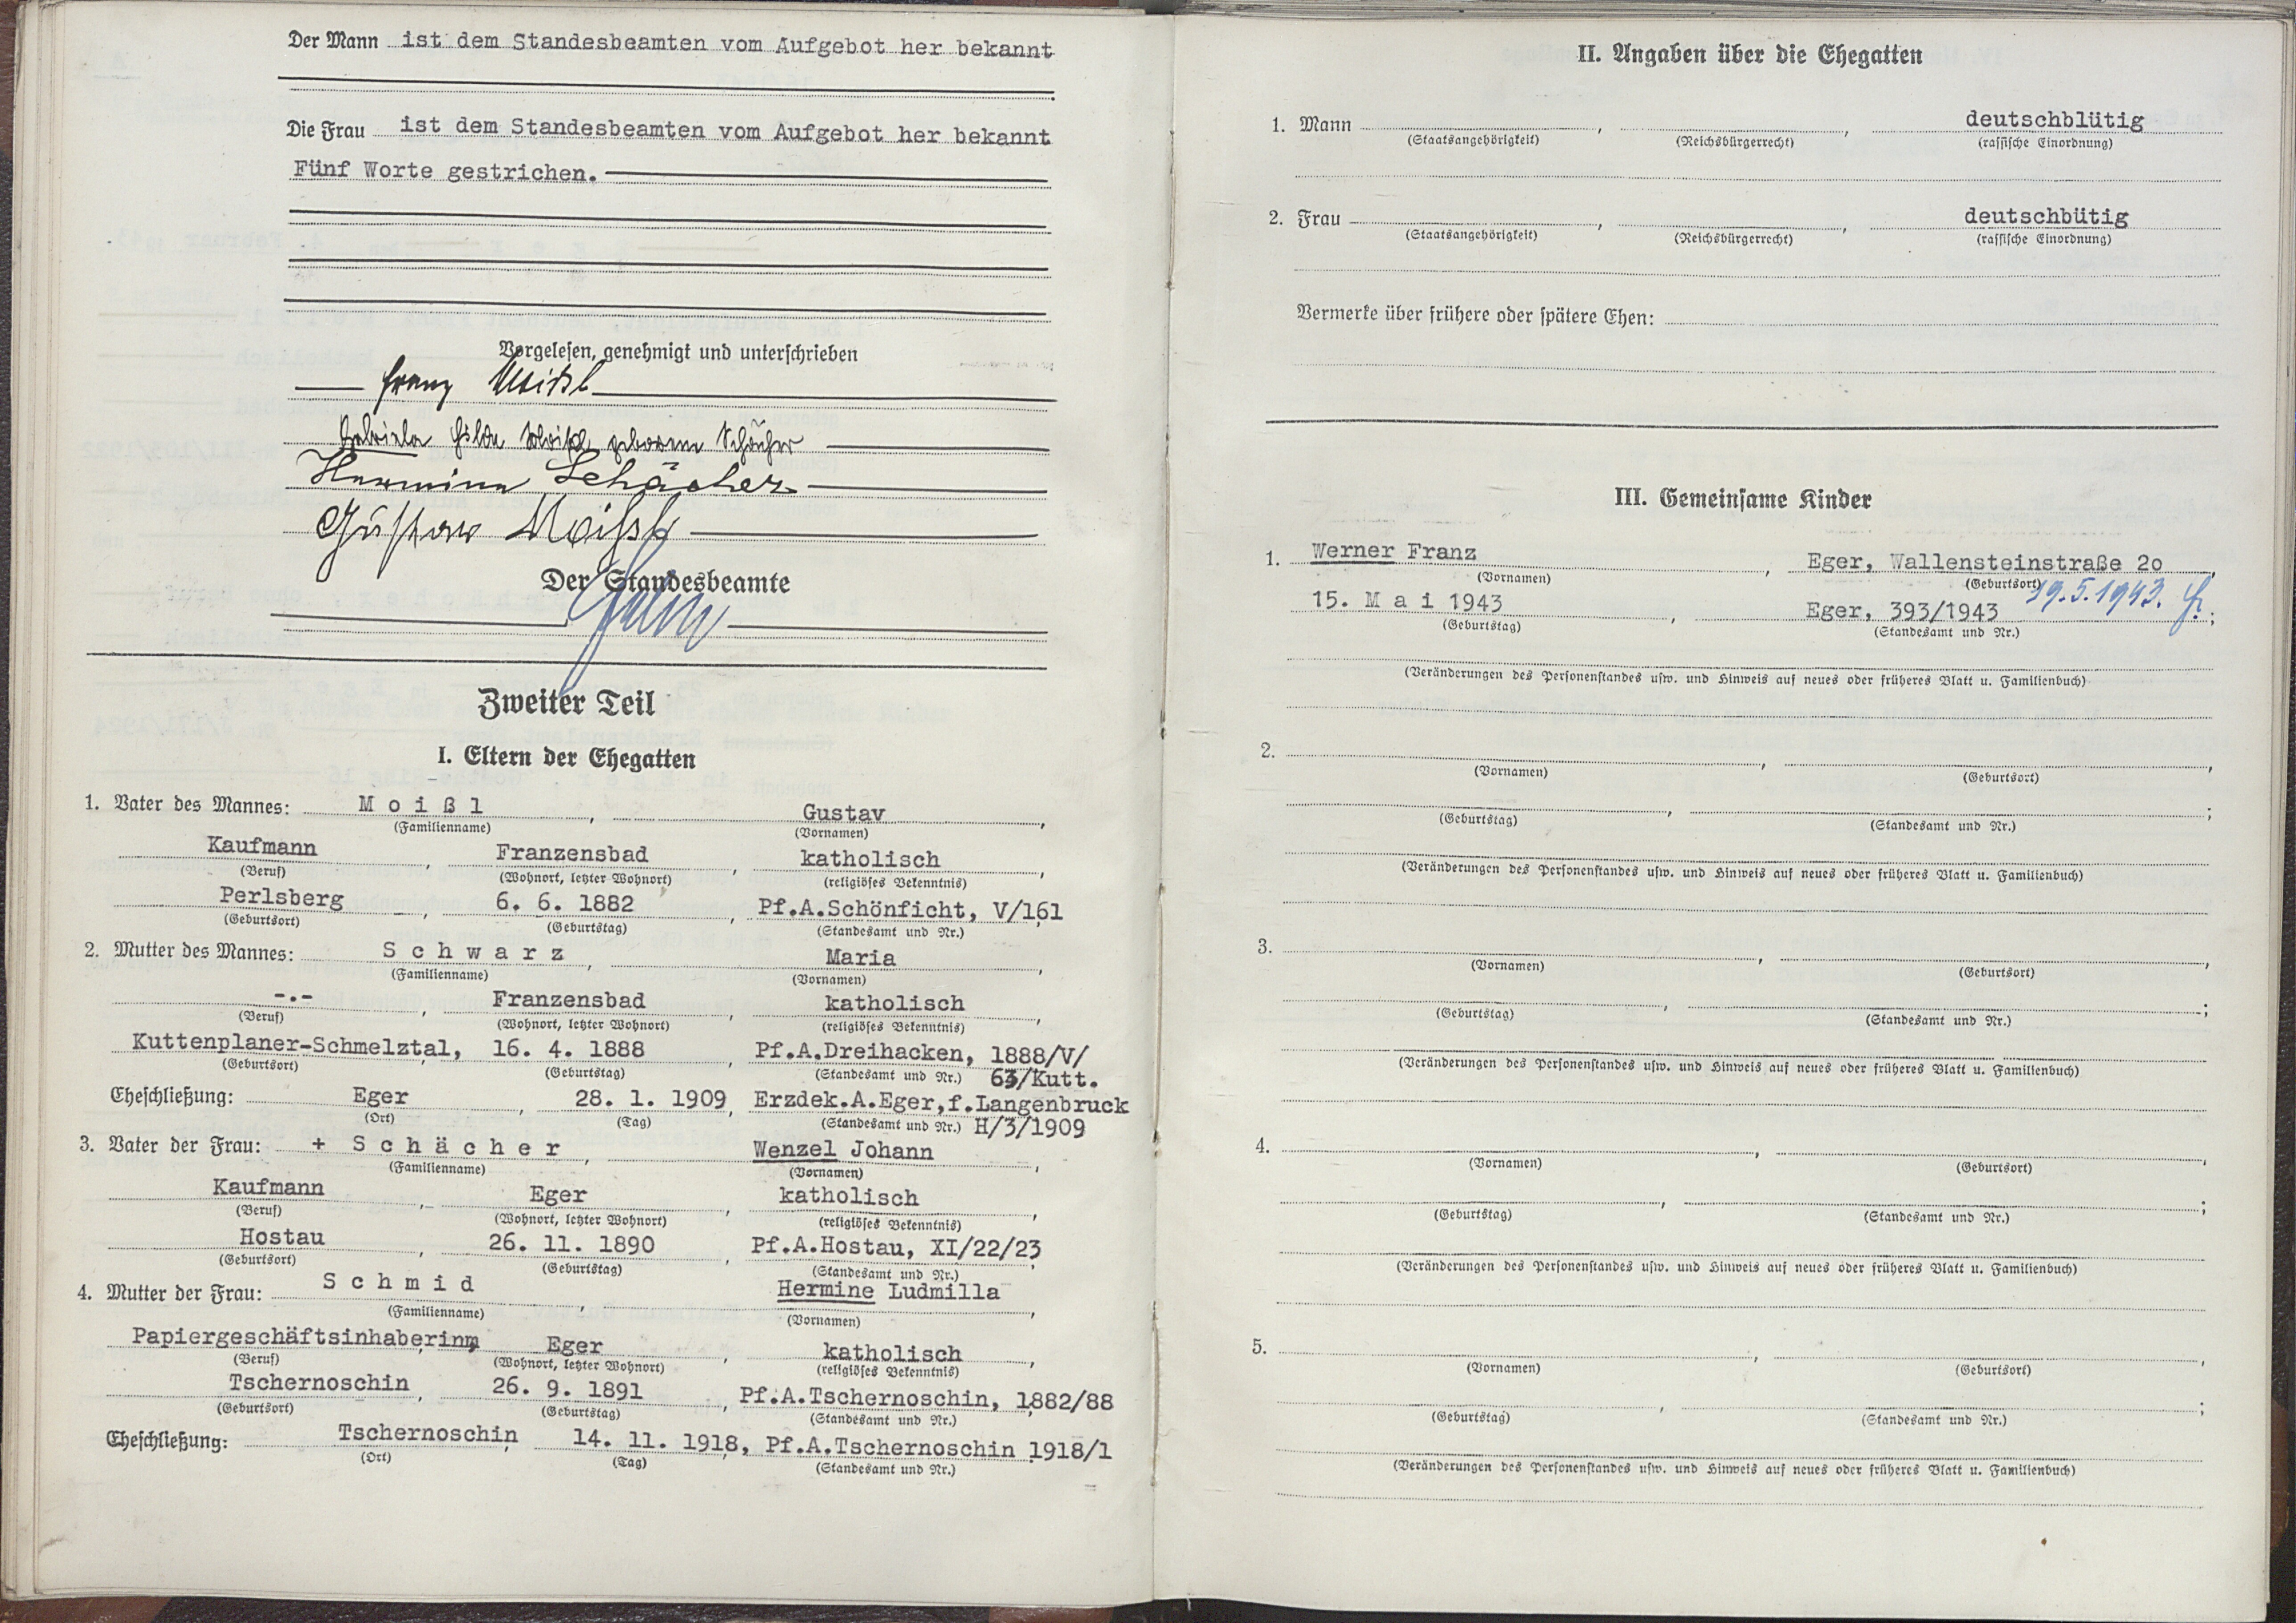 Der Mann ist dem Standesbeamten vom Aufgebot her bekannt
Die Frau ist dem Standesbeamten vom Aufgebot her bekannt
Fünf Worte gestrichen.
Vorgelesen, genehmigt und unterschrieben
Franz Moißl
Gabriela Hilda Moißl geborene Schächer
Hermine Schächer
Gustav Moißl
Der Standesbeamte
Zweiter Teil
I. Eltern der Ehegatten
1. Vater des Mannes: Moißl, Gustav,
(Familienname) (Vornamen)
Kaufmann, Franzensbad, katholisch,
(Beruf) (Wohnort, letzter Wohnort) (religiöses Bekenntnis)
Perlsberg, 6. 6. 1882, Pf.A.Schönficht, V/161
(Geburtsort) (Geburtstag) (Standesamt und Nr.)
2. Mutter des Mannes: Schwarz, Maria,
(Familienname) (Vornamen)
-.-, Franzensbad, katholisch,
(Beruf) (Wohnort, letzter Wohnort) (religiöses Bekenntnis)
Kuttenplaner-Schmelztal, 16. 4. 1888, Pf.A.Dreihacken, 1888/V/
(Geburtsort) (Geburtstag) (Standesamt und Nr.) 63/Kutt.
Eheschließung: Eger, 28. 1. 1909, Erzdek.A.Eger,f.Langenbruck
(Ort) (Tag) (Standesamt und Nr.) H/3/1909
3. Vater der Frau: + Schächer, Wenzel Johann,
(Familienname) (Vornamen)
Kaufmann, Eger, katholisch,
(Beruf) (Wohnort, letzter Wohnort) (religiöses Bekenntnis)
Hostau, 26. 11. 1890, Pf.A.Hostau, XI/22/23
(Geburtsort) (Geburtstag) (Standesamt und Nr.)
4. Mutter der Frau: Schmid, Hermine Ludmilla,
(Familienname) (Vornamen)
Papiergeschäftsinhaberinn, Eger, katholisch,
(Beruf) (Wohnort, letzter Wohnort) (religiöses Bekenntnis)
Tschernoschin, 26. 9. 1891, Pf.A.Tschernoschin, 1882/88
(Geburtsort) (Geburtstag) (Standesamt und Nr.)
Eheschließung: Tschernoschin, 14. 11. 1918, Pf.A.Tschernoschin 1918/1
(Ort) (Tag) (Standesamt und Nr.)
II. Angaben über die Ehegatten
1. Mann, , deutschblütig
(Staatsangehörigkeit) (Reichsbürgerrecht) (rassische Einordnung)
2. Frau, , deutschbütig
(Staatsangehörigkeit) (Reichsbürgerrecht) (rassische Einordnung)
Vermerke über frühere oder spätere Ehen:
III. Gemeinsame Kinder
1. Werner Franz, Eger, Wallensteinstraße 2o,
(Vornamen) (Geburtsort)
15. Mai 1943, Eger, 393/1943 19.5.1943.;
(Geburtstag) (Standesamt und Nr.)
(Veränderungen des Personenstandes usw. und Hinweis auf neues oder früheres Blatt u. Familienbuch)
2. , ,
(Vornamen) (Geburtsort)
, ;
(Geburtstag) (Standesamt und Nr.)
(Veränderungen des Personenstandes usw. und Hinweis auf neues oder früheres Blatt u. Familienbuch)
3. , ,
(Vornamen) (Geburtsort)
, ;
(Geburtstag) (Standesamt und Nr.)
(Veränderungen des Personenstandes usw. und Hinweis auf neues oder früheres Blatt u. Familienbuch)
4. , ,
(Vornamen) (Geburtsort)
, ;
(Geburtstag) (Standesamt und Nr.)
(Veränderungen des Personenstandes usw. und Hinweis auf neues oder früheres Blatt u. Familienbuch)
5. , ,
(Vornamen) (Geburtsort)
, ;
(Geburtstag) (Standesamt und Nr.)
(Veränderungen des Personenstandes usw. und Hinweis auf neues oder früheres Blatt u. Familienbuch)